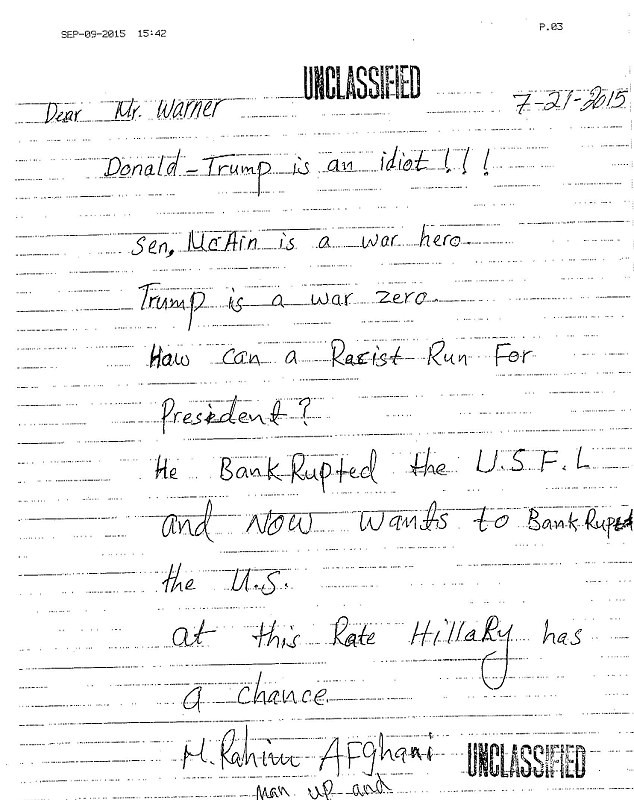 SEP-09-2015 15:42
P.03
UNCLASSIFIED
Dear Mr. Warner
7-21-2015
Donald-Trump is an idiot!!!
Sen, McAin is a war hero.
Trump is a war zero.
Haw can a Racist Run For
President?
He BankRupted the U.S.F.L
and NOW wants to BankRupt
the U.S.
at this Rate HillaRy has
a chance.
M. Rahim AFghani
UNCLASSIFIED
man up and